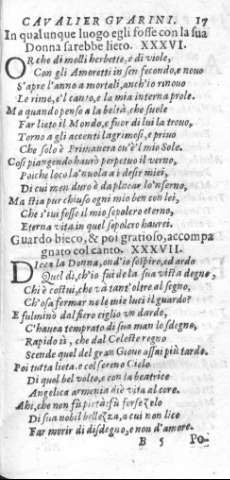 CAVALIER GVARINI. 17
In qualunque luogo egli fosse con la sua
Donna sarebbe lieto. XXXVI.
ORche di molli herbette, e di viole,
Con gli Amoretti in sen fecondo, e nouo
S'apre l'anno a mortali, anch'io rinouo
Le rime, e'l canto, e la mia interna prole.
Ma quando penso a la beltà, che suole
Far lieto il Mondo, e fuor di lui la trouo,
Torno a gli accenti lagrimosi, e priuo
Che solo è Primauera ou'è'l mio Sole.
Cosi piangendo haurò perpetuo il verno,
Poiche loco la'nuola a i desir miei,
Di cui men duro è da placar lo'nferno.
Ma stia pur chiuso ogni mio ben con lei,
Che s'iui fosse il mio sepolcro eterno,
Eterna vita in quel sepolcro haurei.
Guardo bieco, & poi gratioso, accompa
gnato col canto. XXXVII.
DIcea la Donna, ond'io sospiro, ed ardo
Quel dì, ch'io fui de la sua vista degno,
Chi è costui, che và tant'oltre al segno,
Ch'osa fermar ne le mie luci il guardo?
E fulminò dal fiero ciglio vn dardo,
C'hauea temprato di sua man lo sdegno,
Rapido sì, che dal Celeste regno
Scende quel del gran Gioue assai più tardo.
Poi tutta lieta, e col sereno Cielo
Di quel bel volto, e con la beatrice
Angelica armonia diè vita al core.
Ahi, che non fù pietà: fù forse zelo
Di sua nobil bellezza, a cui non lice
Far morir di disdegno, e non d'amore.
B 5 Po-